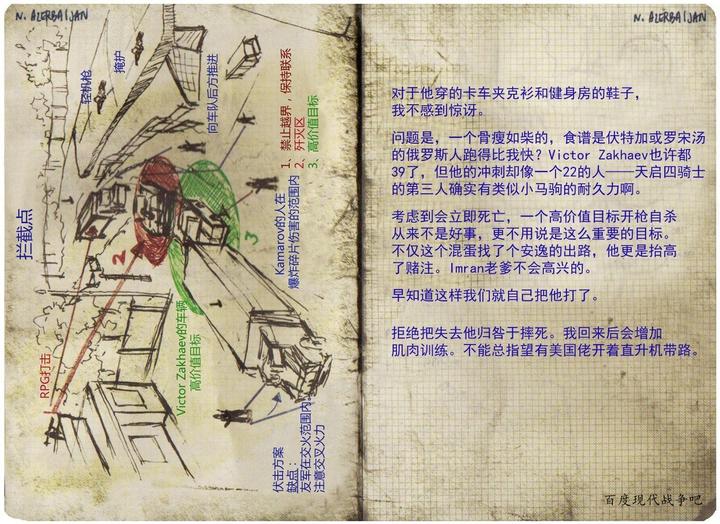 N. AZERBAIJAN
拦截点
轻机枪
掩护
向车队后方推进
1、禁止越界，保持联系
2、歼灭区
3、高价值目标
Kamarov的人在
爆炸碎片伤害的范围内
1
2
3
1
RPG打击
Victor Zakhaev的车辆
高价值目标
伏击方案
缺点：
友军在交火范围内。
注意交叉火力
N. AZERBAIJAN
对于他穿的卡车夹克衫和健身房的鞋子，
我不感到惊讶。
问题是，一个骨瘦如柴的，食谱是伏特加或罗宋汤
的俄罗斯人跑得比我快？Victor Zakhaev也许都
39了，但他的冲刺却像一个22的人——天启四骑士
的第三人确实有类似小马驹的耐久力啊。
考虑到会立即死亡，一个高价值目标开枪自杀
从来不是好事，更不用说是这么重要的目标。
不仅这个混蛋找了个安逸的出路，他更是抬高
了赌注。Imran老爹不会高兴的。
早知道这样我们就自己把他打了。
拒绝把失去他归咎于摔死。我回来后会增加
肌肉训练。不能总指望有美国佬开着直升机带路。
百度现代战争吧